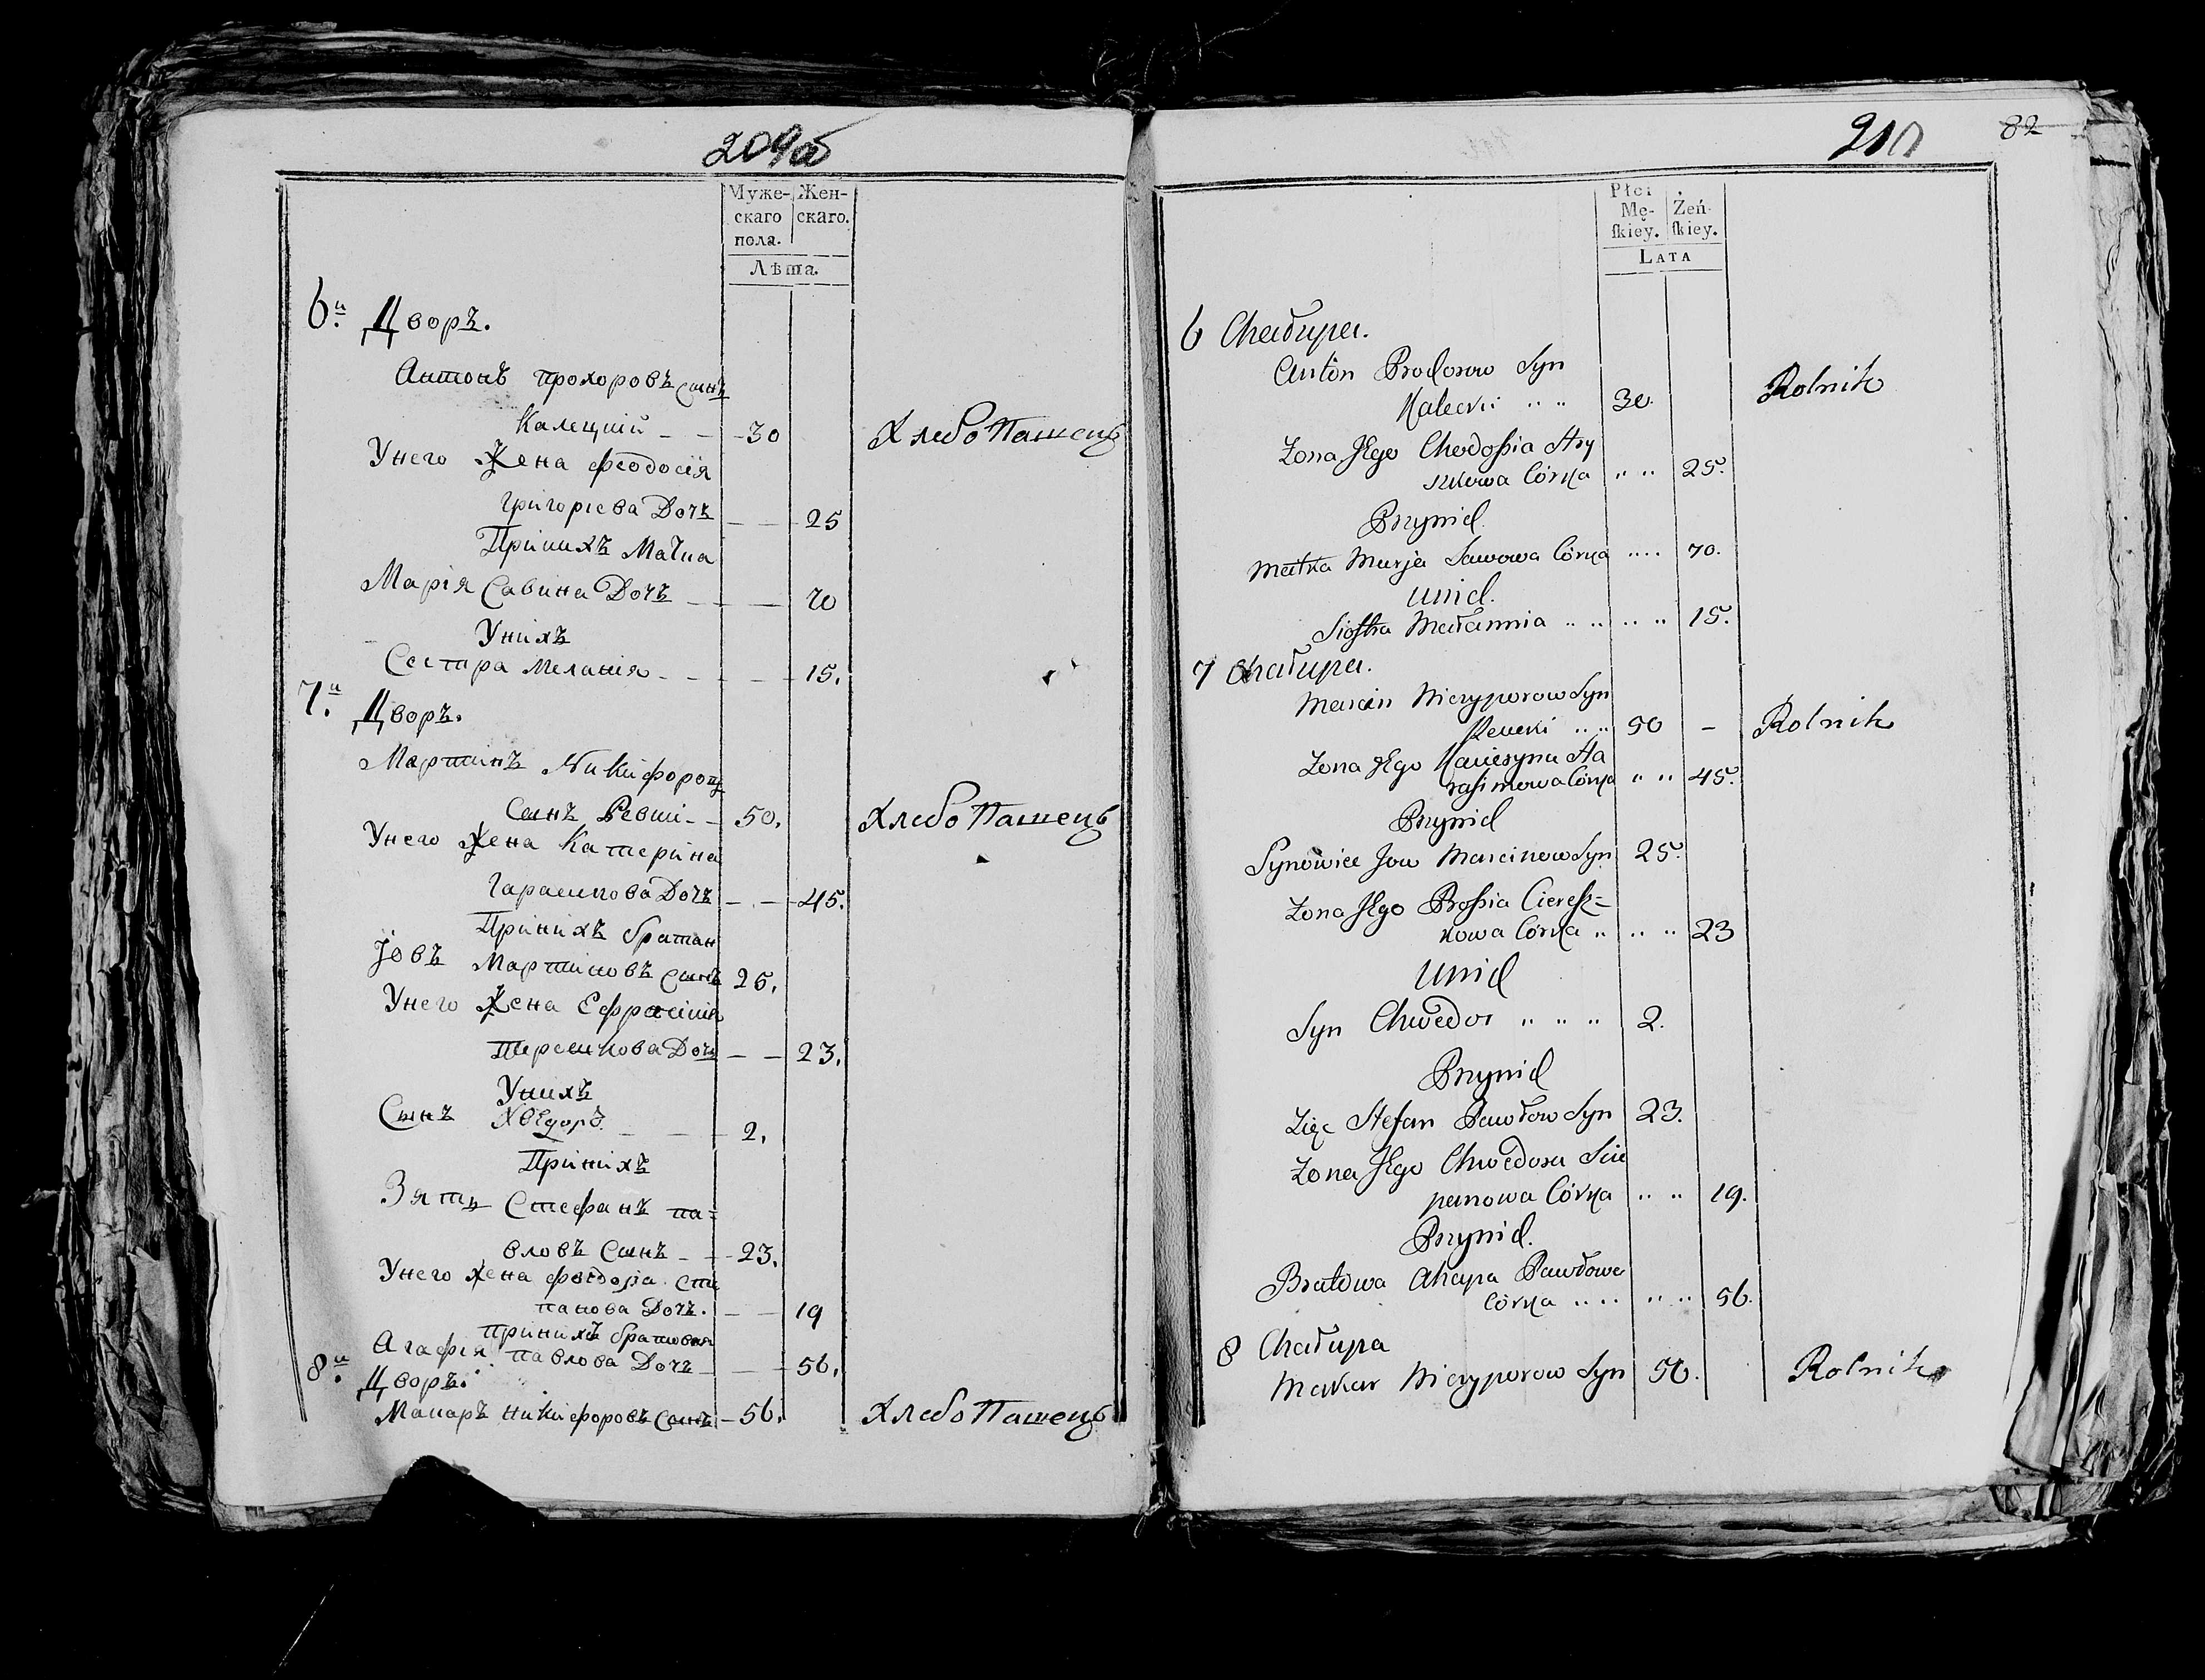 209об
Муже- Жен-
скаго скаго.
пола.
Лѣта.
6й Дворъ.
Антонъ Прохоровъ сынъ
Калецкій - - 30 Хлебопашецъ
Унего Жена Феодосія
Григоріева Дочь - - 25
При нихъ Матка
Марія Савина Дочь - - 70
У нихъ
Сестра Меланія - - - - 15.
7й Дворъ.
Мартинъ Никифоровъ
Сынъ - - 50. Хлебопашецъ
Унего Жена Катерина
Гарасимова Дочь - - 45.
При нихъ братан
Іовъ Мартиновъ сынъ 25.
Унего Жена Ефросинія
Терешкова Дочь - - 23.
У нихъ
Сынъ Хведоръ - - - 2.
При нихъ
Зять Стефанъ Па=
вловъ Сынъ - - 23.
Унего жена Феодора Сте
панова Дочь. - - 19
При нихъ братовая
Агафія Павлова Дочь - - 56.
8й Дворъ.
Макаръ Никифоровъ Сынъ - 56. Хлебопашецъ
210 82
Płci
Mę- Żeń-
ſkiey. ſkiey.
LATA
6 Chałupa.
Anton Prochorow Syn
Kalecki " " 30. Rolnik
Żona Jego Chwedoſsia Hry
" " 25.
Przynich
Matka Marja Sawowa Córka " " 70.
Unich.
Sioſtra Małannia " " " " 15.
7 Chałupa.
Marcin Niczyporow Syn
" " 50 - Rolnik
Żona Jego Kacieryna Ha
raſimowa Córka " " 45.
Przynich
Synowiec Jow Marcinow Syn 25.
Żona Jego ProſsiaCiereſz=
kowa Córka " " " 23
Unich
Syn Chwedor " " " 2.
Przynich
Zięć Stefan Pawłow Syn 23.
Żona Jego Chwedora Scie
panowa Córka " " 19.
Przynich.
Bratowa Ahapa Pawłowa
Córka " " " " 56.
8 Chałupa
Makar Niczyporow Syn 56. Rolnik